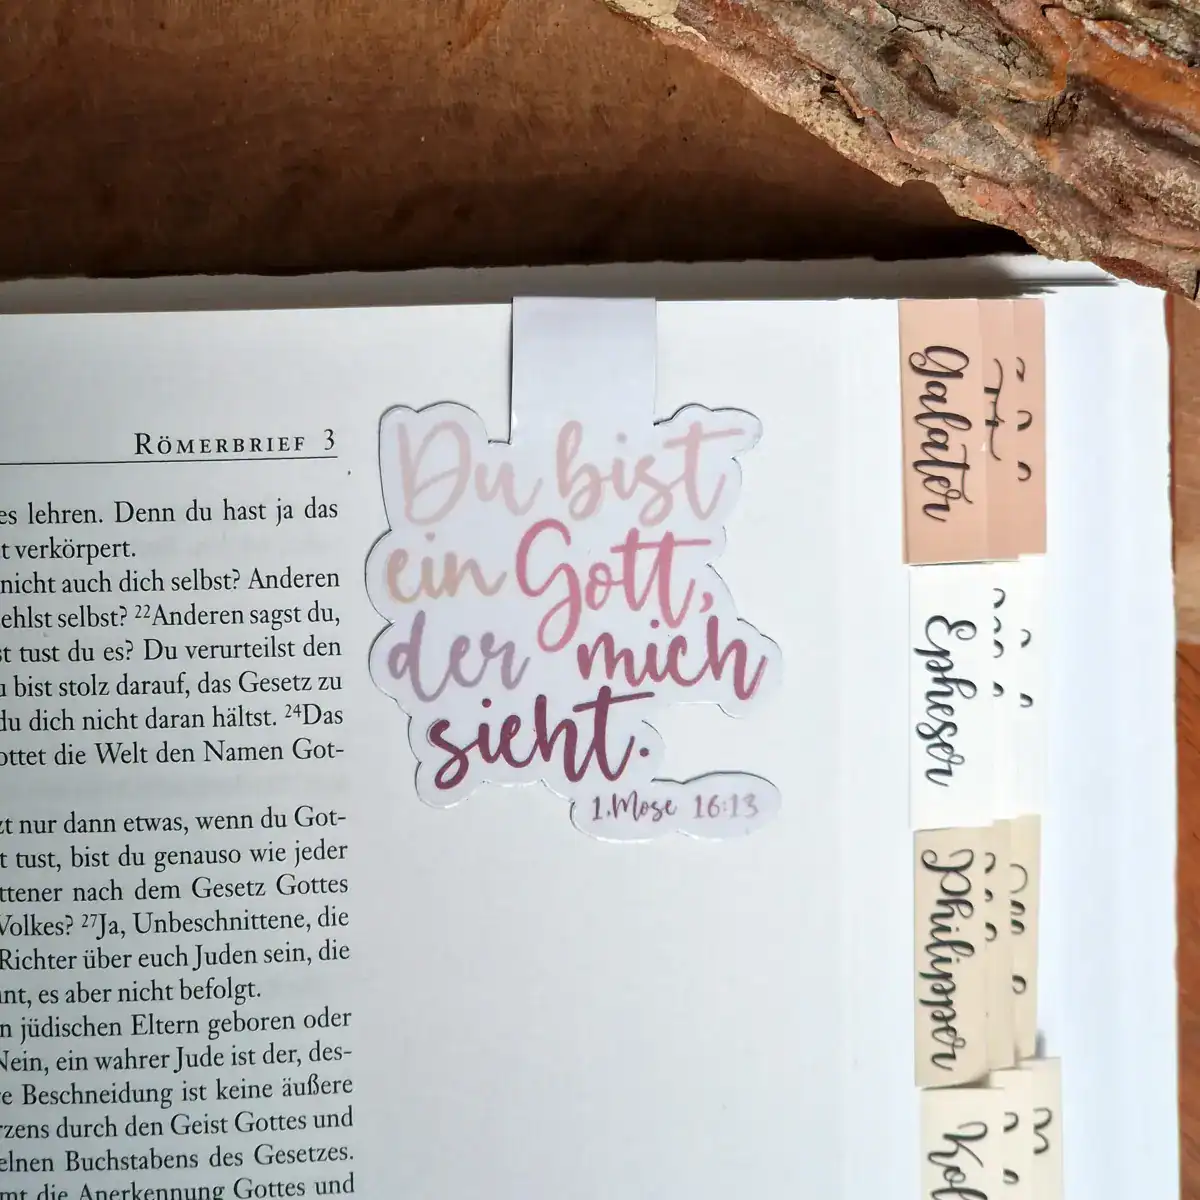 RÖMERBRIEF 3
es lehren. Denn du hast ja das
t verkörpert.
nicht auch dich selbst? Anderen
ehlst selbst? ²²Anderen sagst du,
st tust du es? Du verurteilst den
u bist stolz darauf, das Gesetz zu
du dich nicht daran hältst. ²⁴Das
ottet die Welt den Namen Got-
zt nur dann etwas, wenn du Got-
t tust, bist du genauso wie jeder
ttener nach dem Gesetz Gottes
Volkes? ²⁷Ja, Unbeschnittene, die
Richter über euch Juden sein, die
nnt, es aber nicht befolgt.
n jüdischen Eltern geboren oder
Nein, ein wahrer Jude ist der, des-
re Beschneidung ist keine äußere
rzens durch den Geist Gottes und
elnen Buchstabens des Gesetzes.
mt die Anerkennung Gottes und
Du bist
ein Gott,
der mich
sieht.
1.Mose 16:13
Galater
Epheser
Philipper
Kol